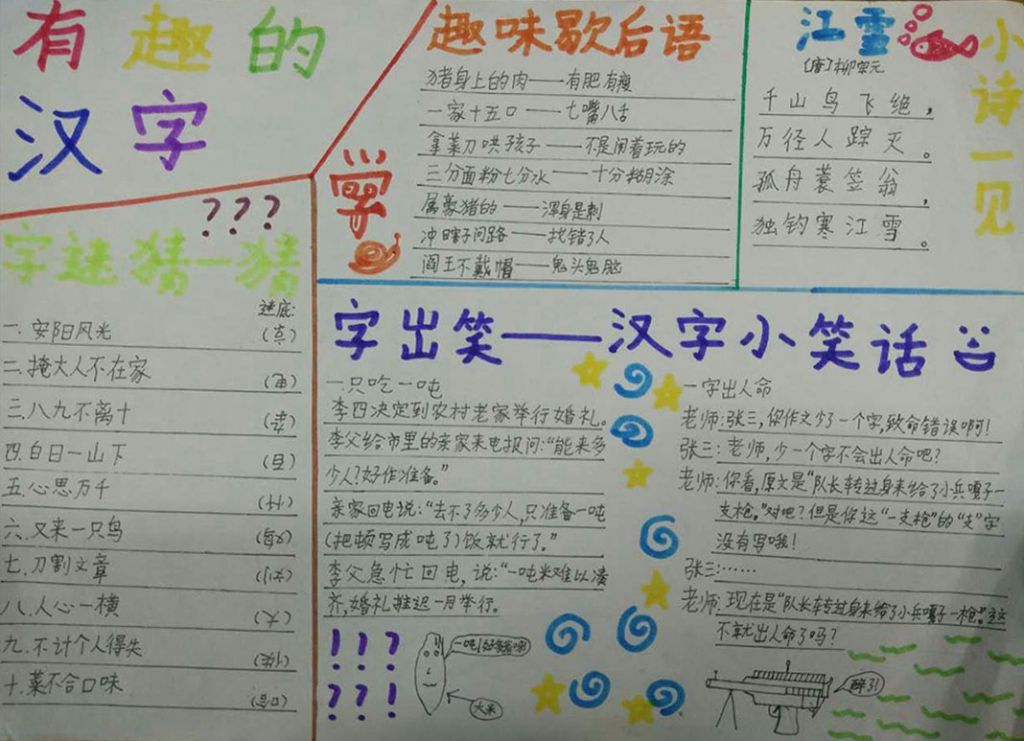 有趣的
汉字
趣味歇后语
猪身上的肉——有肥有瘦
一家十五口——七嘴八舌
拿菜刀哄孩子——不是闹着玩的
三分面粉七分水——十分糊涂
属豪猪的——浑身是刺
冲瞎子问路——找错了人
阎王不戴帽——鬼头鬼脑
学
江雪
(唐)柳宗元
千山鸟飞绝，
万径人踪灭。
孤舟蓑笠翁，
独钓寒江雪。
小诗一见
???
字迷猜一猜
迷底:
一.安阳风光
二.掩大人不在家
三.八九不离十
四.白日一山下
五.心思万千
六.又来一只鸟
七.刀割文章
八.人心一横
九.不计个人得失
十.菜不合口味
字出笑——汉字小笑话
一.只吃一吨
李四决定到农村老家举行婚礼。
李父给市里的亲家来电报问:“能来多
少人?好作准备。”
亲家回电说:“去不了多少人,只准备一吨
(把顿写成吨了)饭就行了。”
李父急忙回电,说:“一吨米难以凑
齐,婚礼推迟一月举行。
!!?
??!
大米
一字出人命
老师:张三,你作文少了一个字,致命错误啊!
张三:老师,少一个字不会出人命吧?
老师:你看,原文是“队长转过身来给了小兵嘎子一
支枪。”对吧?但是你这“一支枪”的“支”字
没有写哦!
张三:……
老师:现在是“队长转过身来给了小兵嘎子一枪。”这
不就出人命了吗?
醉了!